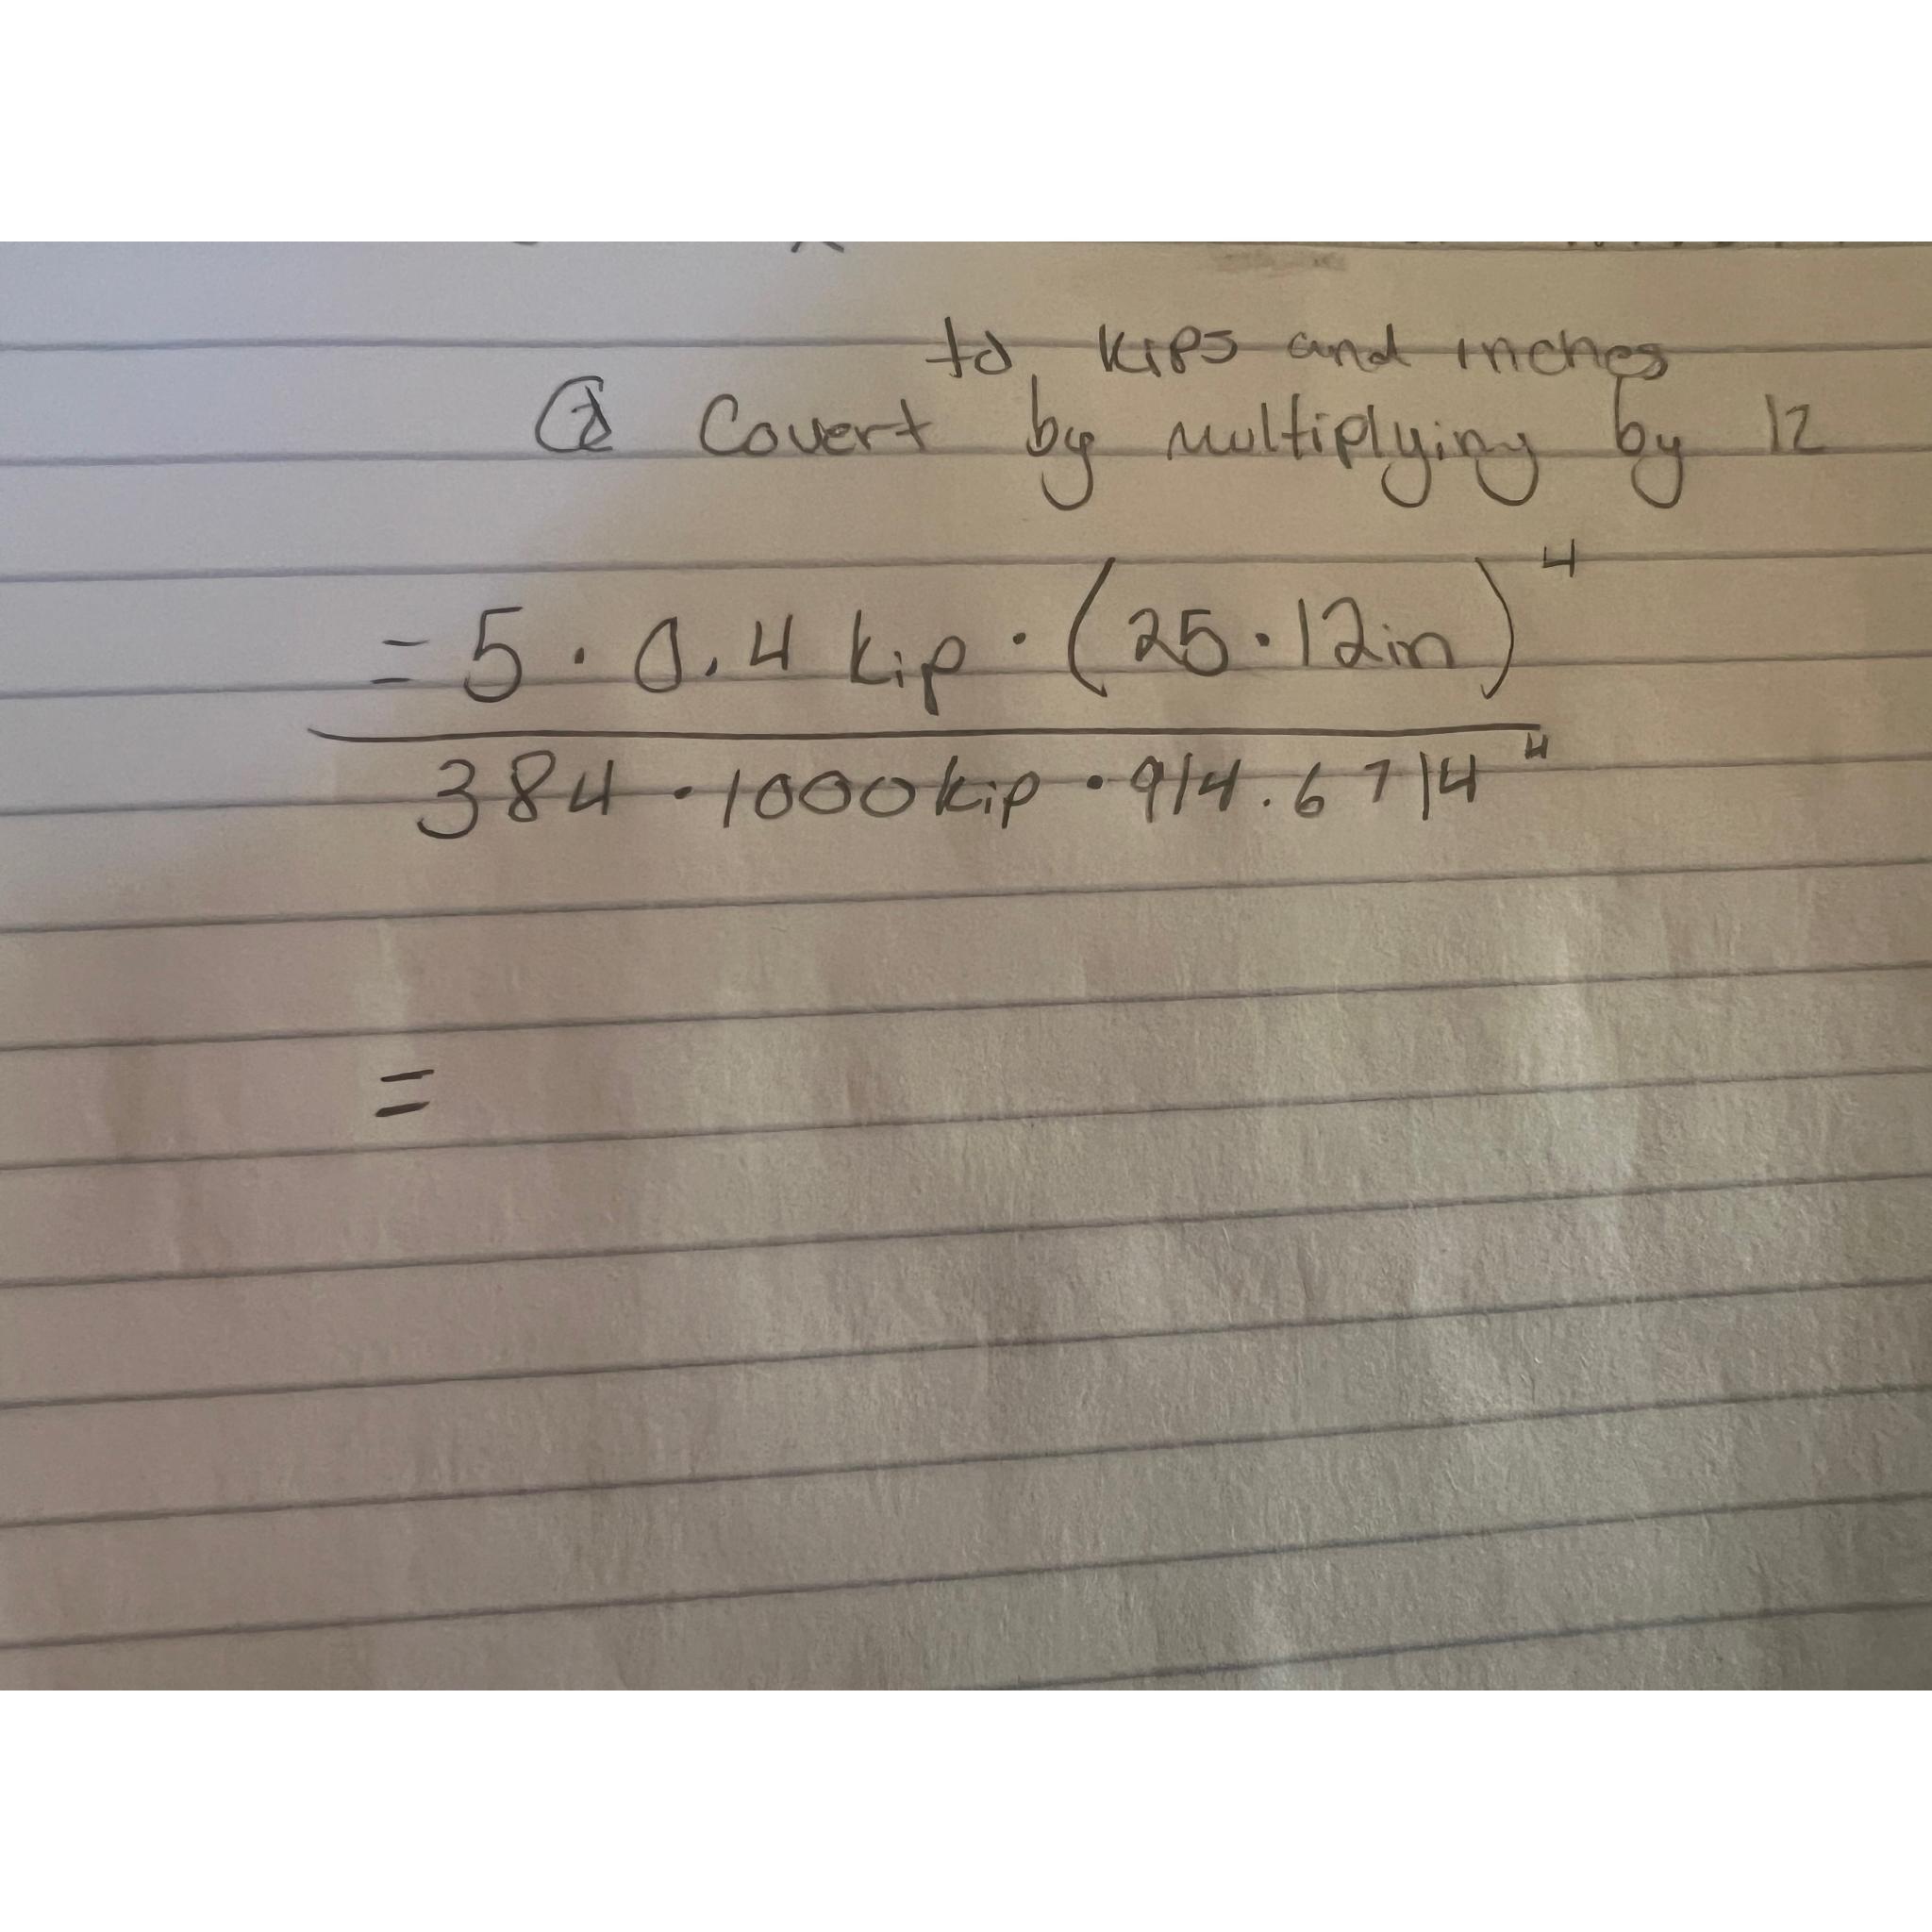 to kips and inches
② Covert by multiplying by 12
= 5 · 0.4 kip · (25 · 12in)⁴
384 · 1000 kip · 914.6714⁴
=